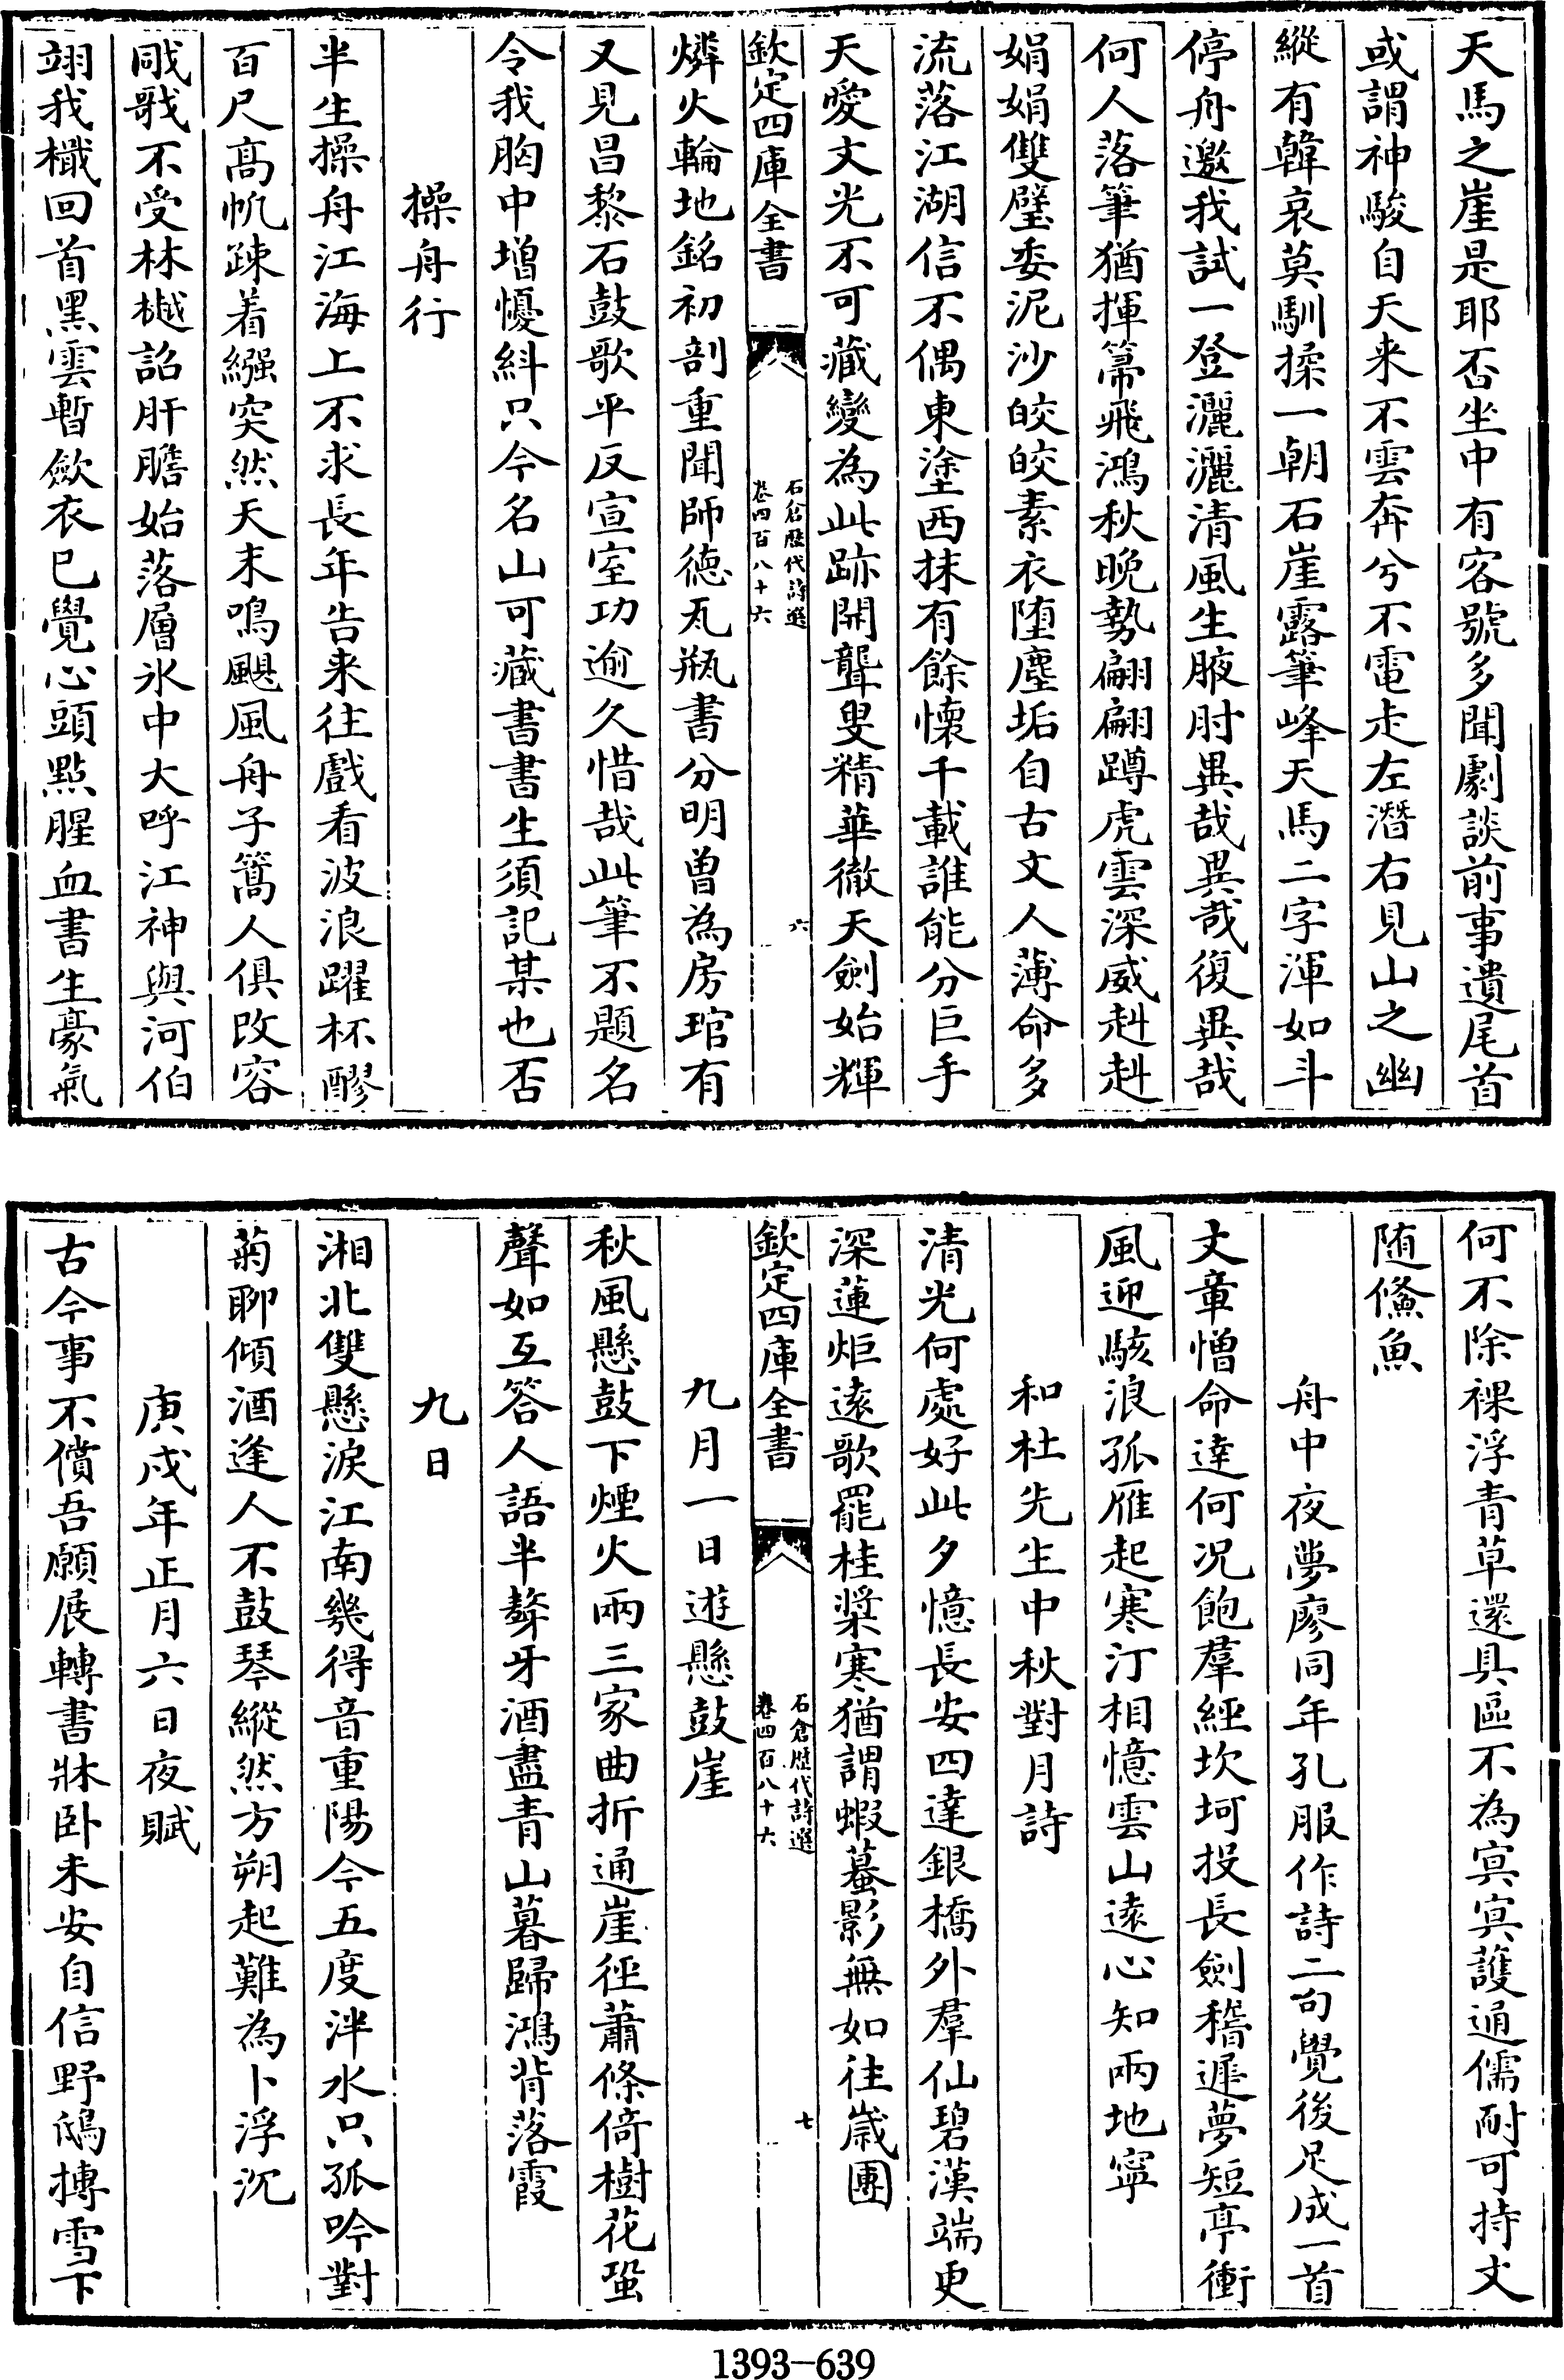 天馬之崖是耶否坐中有客號多聞劇談前事遺尾首
或謂神駿自天来不雲奔兮不電走左潛右見山之幽
縱有韓哀莫馴揉一朝石崖露筆峰天馬二字渾如斗
停舟邀我試一登灑灑清風生腋肘異哉異哉復異哉
何人落筆猶揮箒飛鴻秋晚勢翩翩蹲虎雲深威赳赳
娟娟雙璧委泥沙皎皎素衣堕塵垢自古文人薄命多
流落江湖信不偶東塗西抹有餘懷千載誰能分巨手
天愛文光不可藏變為此跡開聾叟精華徹天劍始輝
欽定四庫全書
石倉歷代詩選
卷四百八十六
六
燐火輪地銘初剖重聞師徳瓦瓶書分明曾為房琯有
又見昌黎石鼓歌平反宣室功逾久惜哉此筆不題名
令我胸中增懮紏只今名山可藏書書生須記某也否
操舟行
半生操舟江海上不求長年告来往戲看波浪躍杯醪
百尺高帆疎着繦突然天末鳴颶風舟子篙人俱改容
戙戨不受林樾詔肝膽始落層氷中大呼江神與河伯
翊我檝回首黑雲暫斂衣已覺心頭點腥血書生豪氣
何不除裸浮青草還具區不為寞寞護通儒耐可持文
随鯈魚
舟中夜夢廖同年孔服作詩二句覺後足成一首
文章憎命達何况飽羣經坎坷投長劍稽遲夢短亭衝
風迎駭浪孤雁起寒汀相憶雲山遠心知兩地寧
和杜先生中秋對月詩
清光何處好此夕憶長安四達銀橋外羣仙碧漢端更
深蓮炬遠歌罷桂槳寒猶謂蝦蟇影無如往歲團
欽定四庫全書
石倉歷代詩選
卷四百八十六
七
九月一日遊懸鼓崖
秋風懸鼓下煙火兩三家曲折通崖徑蕭條倚樹花蛩
聲如互答人語半聱牙酒盡青山暮歸鴻背落霞
九日
湘北雙懸淚江南幾得音重陽今五度泮水只孤吟對
菊聊傾酒逢人不鼓琴縱然方朔起難為卜浮沉
庚戌年正月六日夜賦
古今事不償吾願展轉書牀卧未安自信野鴟摶雪下
1393-639